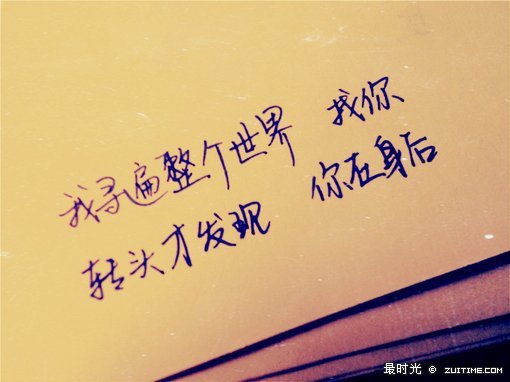 我寻遍整个世界 找你
转头才发现 你在身后
最时光 © ZUITIME.COM